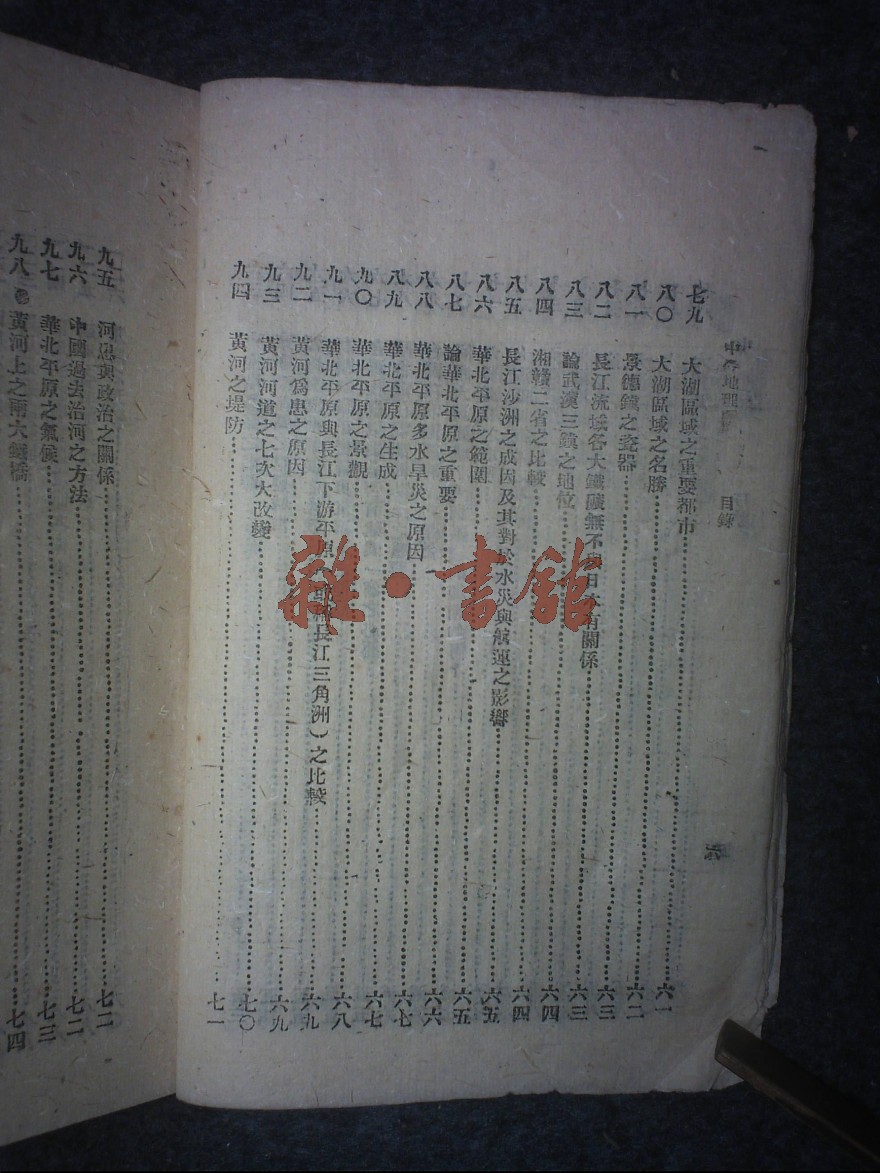 目錄
七九 大湖區域之重要都市 六一
八〇 大湖區域之名勝 六二
八一 景德鎮之瓷器 六三
八二 長江流域各大鐵礦無不與日本有關係 六三
八三 論武漢三鎮之地位 六四
八四 湘贛二省之比較 六四
八五 長江沙洲之成因及其對於水災與航運之影響 六五
八六 華北平原之範圍 六五
八七 論華北平原之重要 六六
八八 華北平原多水旱災之原因 六七
八九 華北平原之生成 六七
九〇 華北平原之景觀 六八
九一 華北平原與長江下游平原 長江三角洲)之比較 六九
九二 黃河爲患之原因 六九
九三 黃河河道之七次大改變 七〇
九四 黃河之堤防 七一
九五 河患與政治之關係 七二
九六 中國過去治河之方法 七二
九七 華北平原之氣候 七三
九八 黃河上之兩大鐵橋 七四
雜·書館